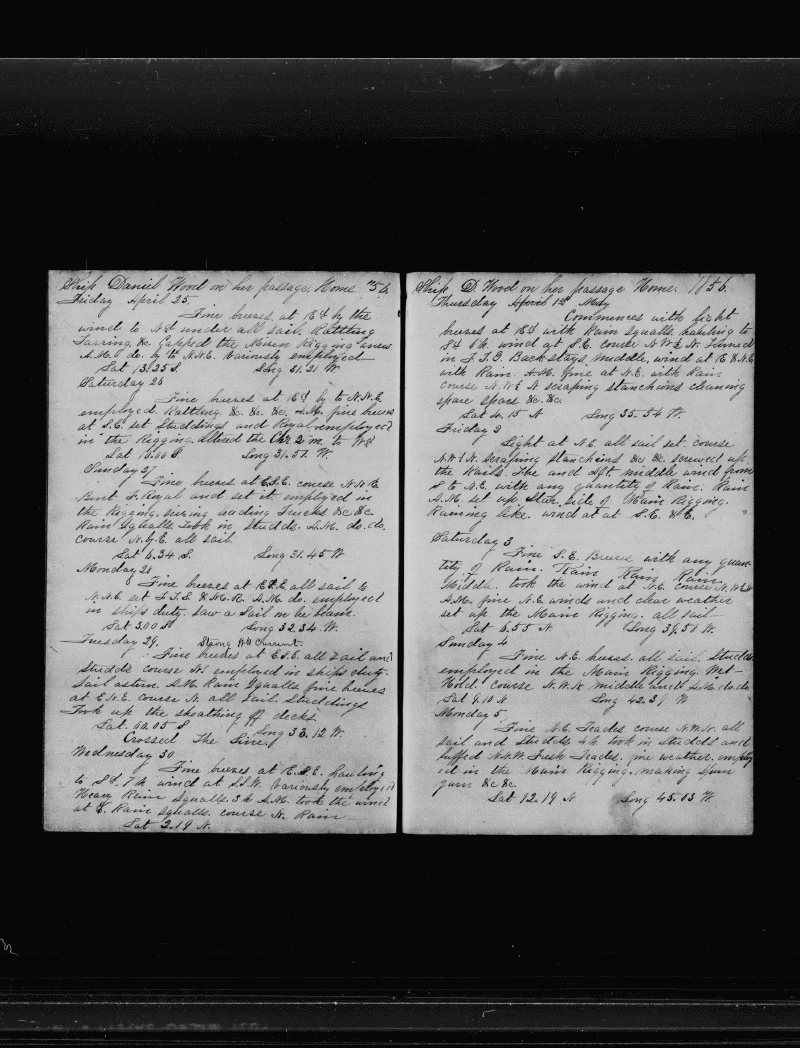 Ship Daniel Wood on her passage Home. '56
Friday April 25.
Fine breeses at Ed by the
wind to Nd under all sail. Rattling
Tarring &c. the Mizen Rigging anew
A.M. do. by th N.N.E. Variously employed
Lat 13.25 S. Long 31.21 W
Saturday 26
Fine breeses at Ed by to N.N.E.
employed. Rattling &c. &c. &c. A.M. fine breeses
at S.E. set Studdings and Royal employed
in the Rigging. Altered the Chr 2 m. to Wd
Lat 10.00 S Long 31.57 W.
Sunday 27
Fine breeses at E.S.E. course N.N.E
Bent F. Royal and set it employed in
the Rigging. seizing leading Trucks &c &c
Rain Squalls. took in studds. A.M. do. do.
course N. all sail.
Lat 6.34 S. Long 31.45 W
Monday 28
Fine breeses at E.S.E all sail to
N.N.E. set F.T.S. & M.R. A.M. do. employed
in ships duty. saw a Sail on lee beam.
Lat 3.00 S Long 32.34. W.
Tuesday 29. Strong Wd Current.
Fine breeses at E.S.E. all Sail and
Studds course N employed in ships duty.
Sail astern. A.M. Rain Squalls fine breeses
at E.N.E. course N all sail. Studdings
Took up the sheathing off decks.
Lat. 00.05 S Long 33.12 W.
Crossed The Line.
Wednesday 30
Fine breeses at E.S.E. hauling
to Sd. 7 h wind at S.S.W. Variously employed
Heavy Rain Squalls. 3 h A.M. took the wind
at E. Rain squalls. course N. Rain
Lat 2.19 N.
Ship D Wood on her passage Home. 1856.
Thursday April 1st May
Commences with light
breeses at Ed with Rain Squalls, hauling to
Sd 6 h. wind at S.E. course N.W & N. Turned
in F.T.G. Backstays, middle, wind at E & N.E
with Rain. A.M. fine at N.E. with Rain
course N.W & N scraping stanchions cleaning
spare spars &c. &c.
Lat 4.15 N Long 35.54 W.
Friday 2
Light at N.E. all sail set. course
N.W & N. scraping stanchions &c &c screwed up
the Rails. Fore and Aft. middle wind from
S to N.E. with any quantity of Rain. Rain
A.M. set up Star. side of Main Rigging.
Raining like. wind at at S.E. & E.
Saturday 3
Fine S.E. Breeses with any quan-
tity of Rain. Rain Rain Rain.
Middle. took the wind at N.E. course N.W & N
A.M. fine N.E. winds and clear weather
set up the Main Rigging. all sail
Lat 6.55 N Long 39.58 W.
Sunday 4
Fine N.E. breeses. all sail. Studds
employed in the Main Rigging. Wd.
course N.W.N. middle and A.M. do. do.
Lat 9.10 N Long 42.39 W
Monday 5
Fine N.E. Trades course N.W.N. all
sail and Studds. 4 h. took in Studds and
luffed N.N.W. Fresh Trades. fine weather. employ
ed in the Main Rigging. making spun
yarn &c &c.
Lat 12.19 N Long 45.03 W.